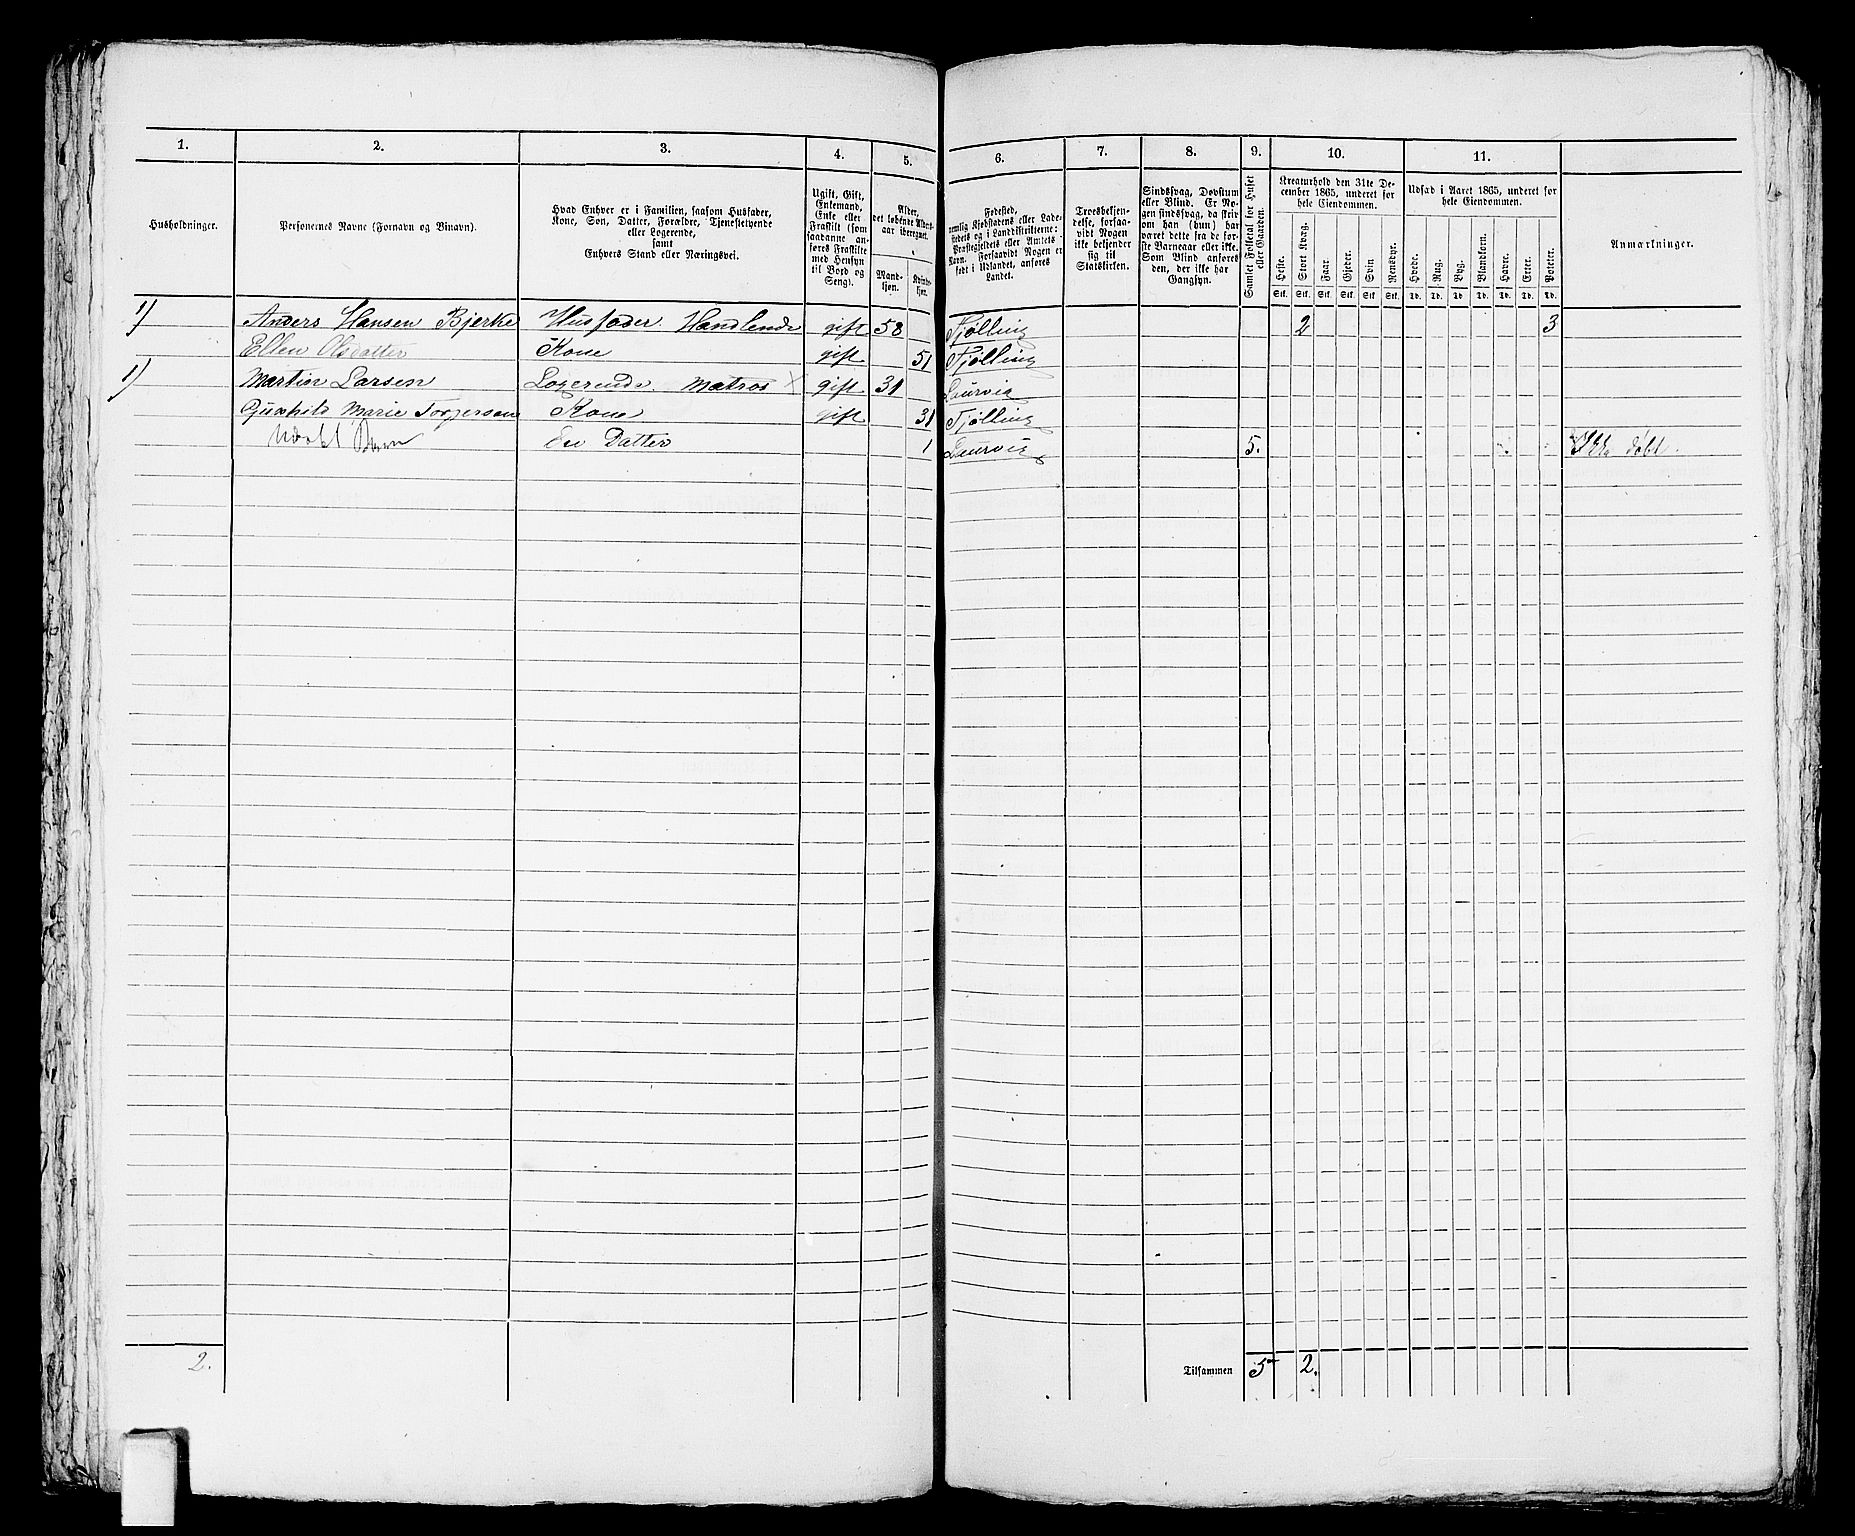 1. 2. 3. 4. 5. 6. 7. 8. 9. 10. 11.
Husholdninger.
Personernes Navne (Fornavn og Binavn).
Hvad Enhver er i Familien, saasom Husfader,
Kone, Søn, Datter, Forældre, Tjenestetyende
eller Logerende,
samt
Enhvers Stand eller Næringsvei.
Ugift, Gift,
Enkemand,
Enke eller
Fraskilt (som
saadanne an-
føres Fraskilte
med Hensyn
til Bord og
Seng).
Alder,
det løbende Alders-
aar iberegnet.
Mand-
kjøn.
Kvinde-
kjøn.
Fødested,
nemlig Kjøbstadens eller Lade-
stedets og i Landdistrikterne:
Præstegjeldets eller Amtets
Navn. Forsaavidt Nogen er
født i Udlandet, anføres
Landet.
Troesbekjen-
delse, forsaa-
vidt Nogen
ikke bekjender
sig til
Statskirken.
Sindssvag, Døvstum
eller Blind. Er No-
gen sindssvag, da skri-
ves om han (hun) har
været dette fra de før-
ste Barneaar eller ikke.
Som Blind anføres
den, der ikke har
Gangsyn.
Samlet Folketal for Huset
eller Gaarden.
Kreaturhold den 31te De-
cember 1865, underet for
hele Eiendommen.
Heste. Stort Kvæg. Faar. Gjeder. Svin Rensdyr.
Stk. Stk. Stk. Stk. Stk Stk.
Udsæd i Aaret 1865, underet for
hele Eiendommen.
Hvede. Rug. Byg. Blandkorn. Havre. Erter. Poteter.
Td. Td. Td Td. Td. Td. Td.
Anmærkninger.
1) Anders Hansen Bjerke Husfader. Handlende gift 58 Tjølling 2 3
Ellen Olsdatter Kone gift 51 Tjølling
1) Martin Larsen Logerende. Matros gift 31 Laurvig
Gunhild Marie Torgersen Kone gift 31 Tjølling
Udøbt Barn En Datter 1 Laurvig 5. Ikke døbt.
2. Tilsammen 5 2.